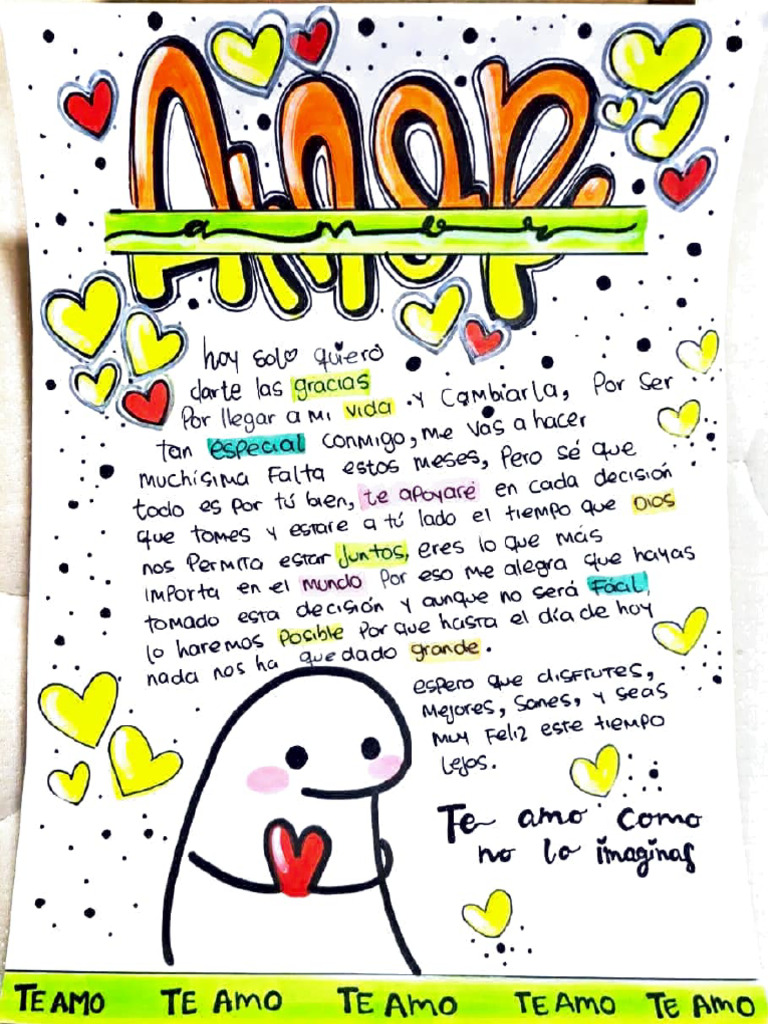 Amor
amor
hoy solo quiero
darte las gracias
Por llegar a mi vida .y cambiarla, Por ser
tan especial conmigo, me vas a hacer
muchísima Falta estos meses, Pero sé que
todo es por tú bien, te apoyaré en cada decisión
que tomes y estare a tú lado el tiempo que Dios
nos Permita estar juntos, eres lo que más
importa en el mundo Por eso me alegra que hayas
tomado esta decisión y aunque no será Fácil,
lo haremos Posible Porque hasta el día de hoy
nada nos ha quedado grande.
espero que disfrutes,
Mejores, Sanes, y seas
muy Feliz este tiempo
lejos.
Te amo como
no lo imaginas
TE AMO TE AMO TE AMO TE AMO TE AMO